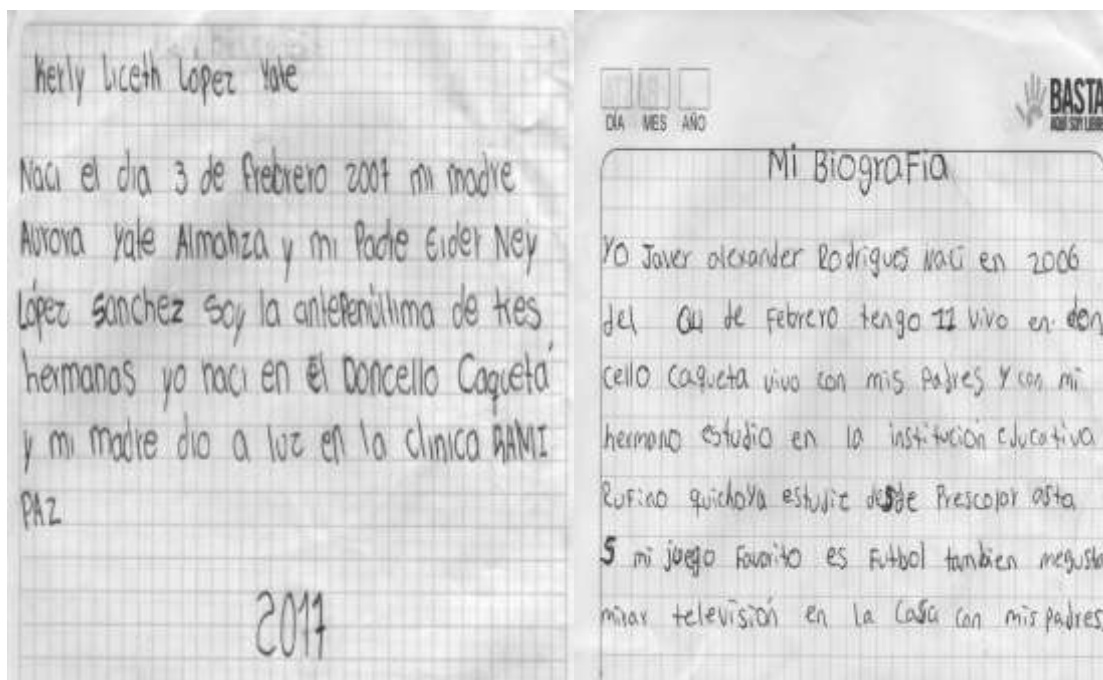 Kerly Liceth López Yate
Naci el dia 3 de frebrero 2007 mi madre
Aurora Yate Almanza y mi Padre Eider Ney
López Sanchez soy la antepenúltima de tres
hermanos yo naci en el Doncello Caquetá
y mi madre dio a luz en la clinica RAMI
PAZ
2017
DÍA MES AÑO
BASTA
AQUÍ SOY LIBRE
Mi BiograFia
Yo Javer alexander Rodrigues Naci en 2006
del 04 de Febrero tengo 11 vivo en don
cello caqueta vivo con mis padres y con mi
hermano estudio en la institución educativa
RuFino quichoya estudie desde Prescolar asta
5 mi juego Favorito es Futbol tambien megusta
mirar televisión en la casa con mis padres